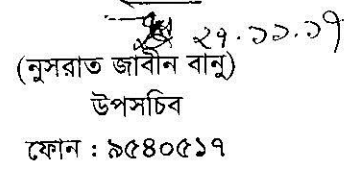 ২৭.১১.১৭
(নুসরাত জাবীন বানু)
উপসচিব
ফোন : ৯৫৪০৫১৭